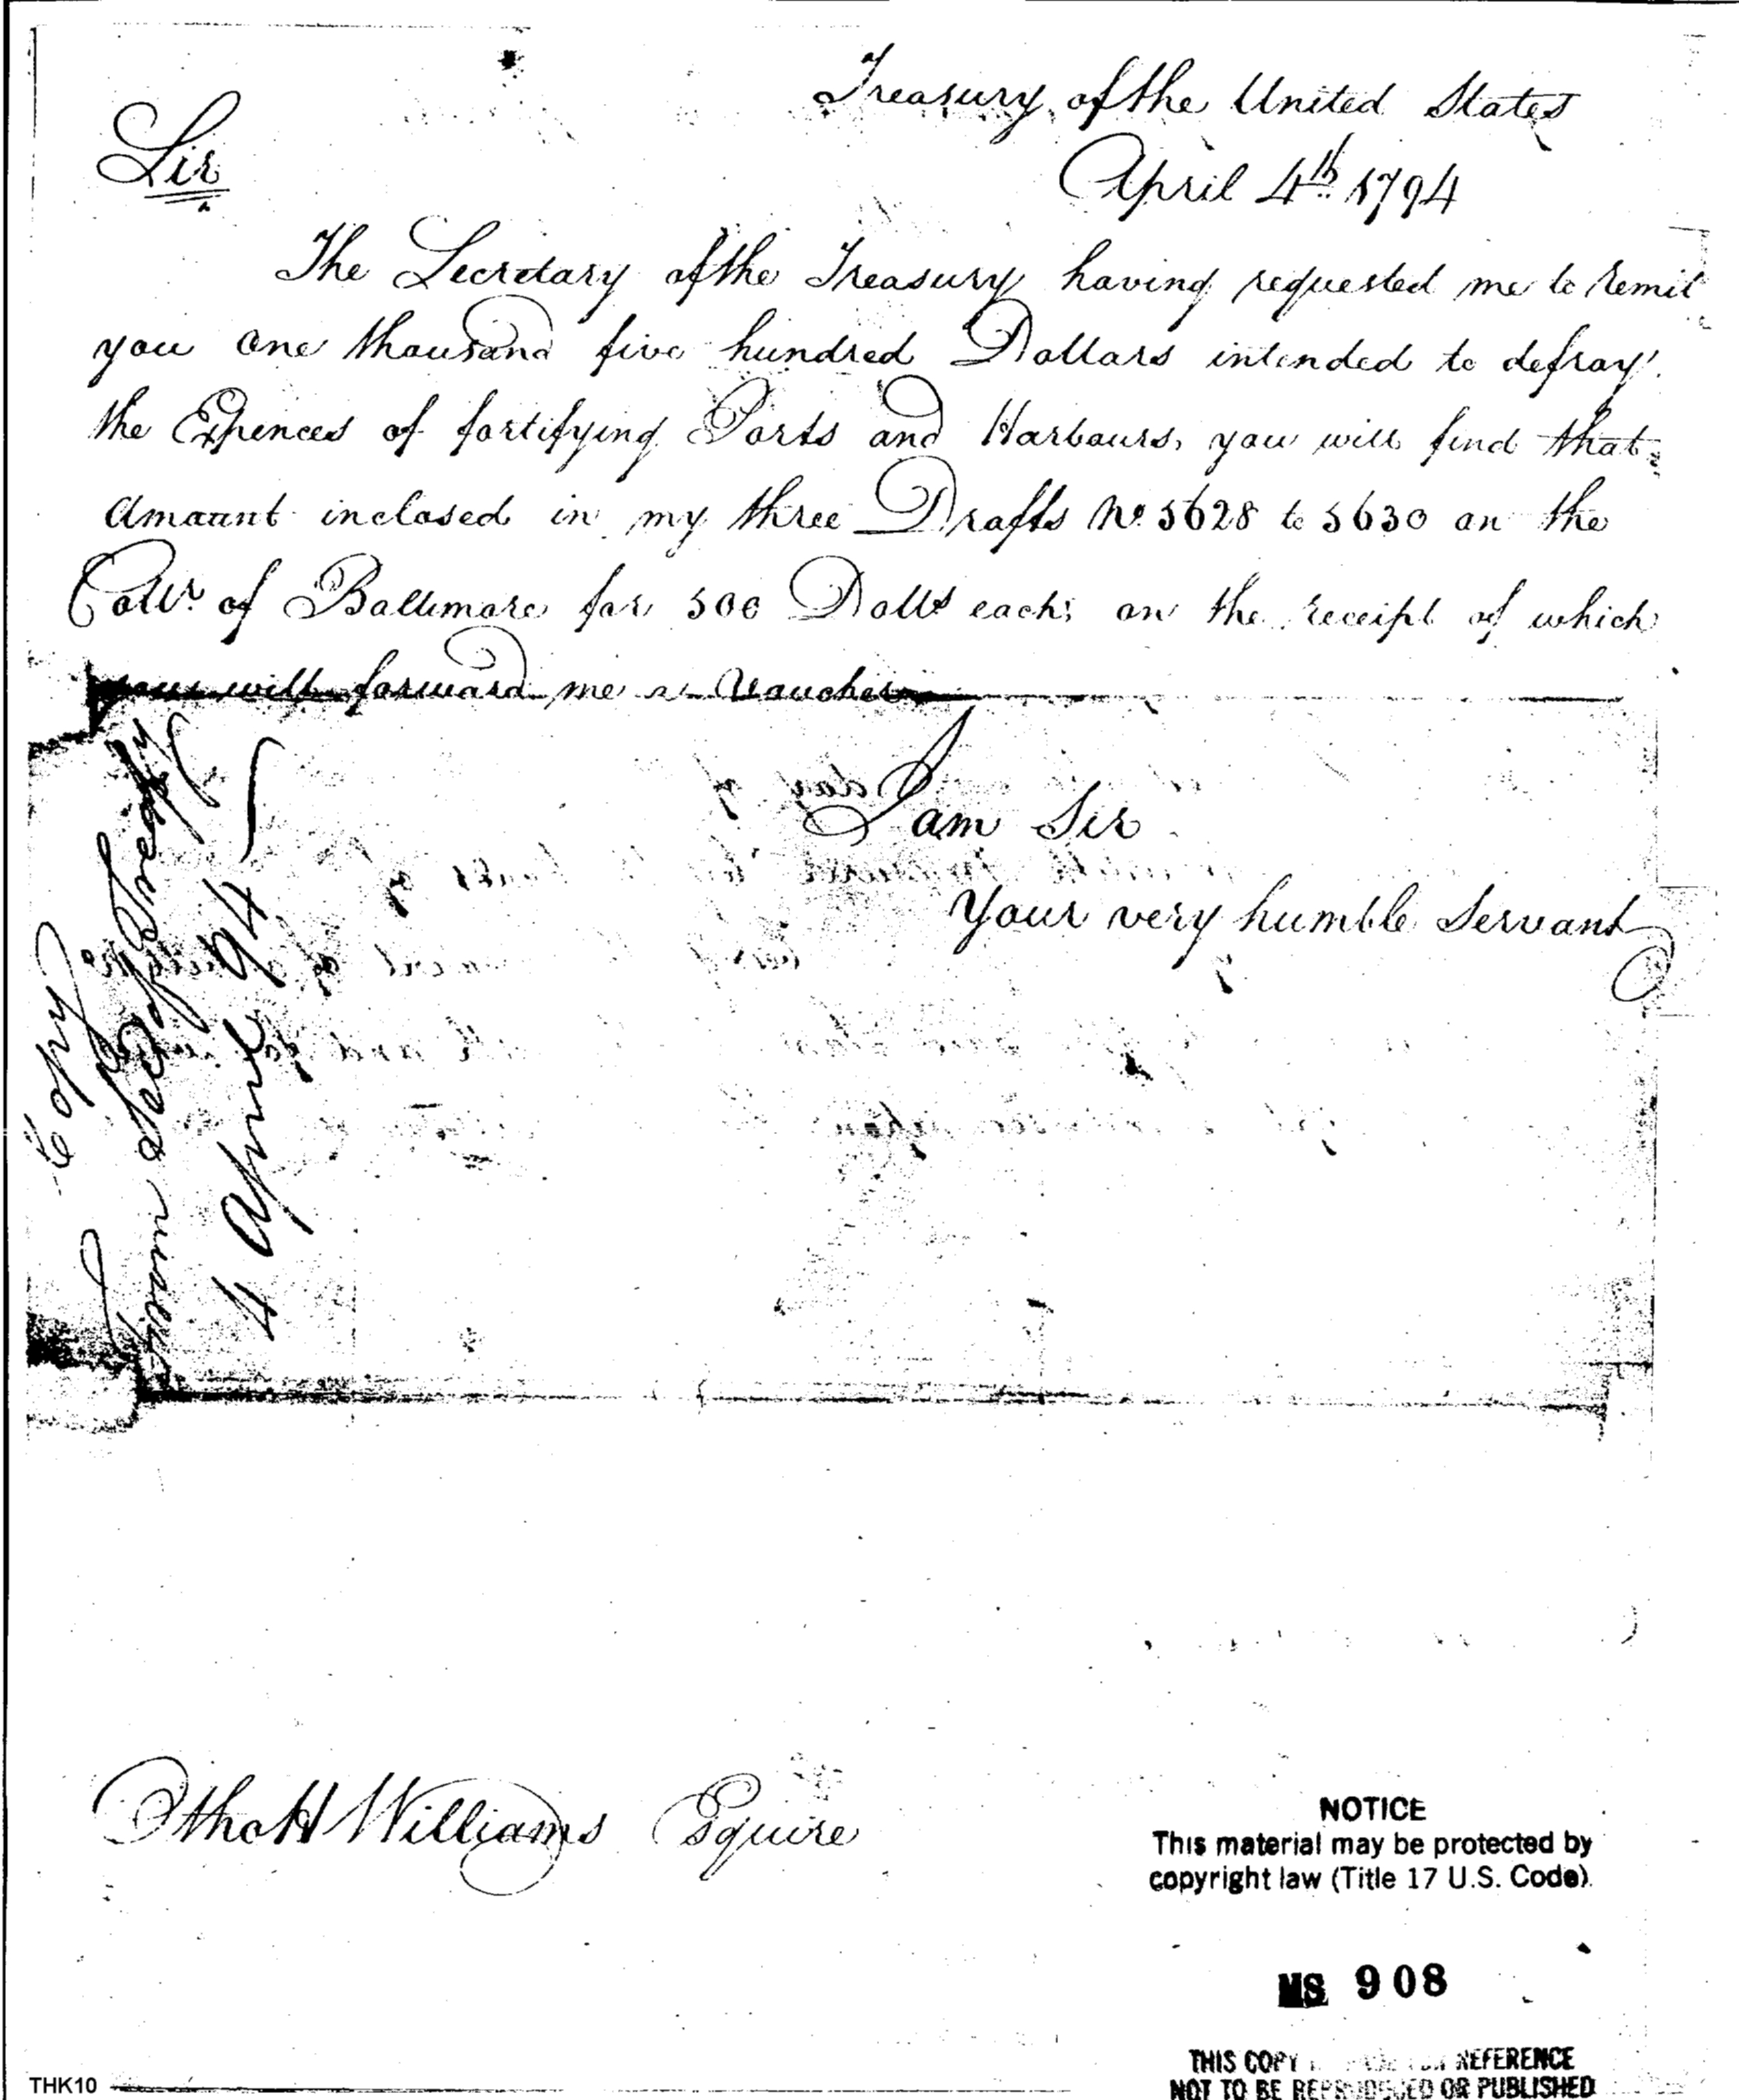 Treasury of the United States
Sir
April 4th 1794
The Secretary of the Treasury having requested me to remit
you one thousand five hundred Dollars intended to defray
the Expences of fortifying Ports and Harbours, you will find that
amount inclosed in my three Drafts No. 5628 to 5630 on the
Collr. of Baltimore for 500 Dolls each; on the receipt of which
you will forward me a Voucher
I am Sir
Your very humble Servant
Copy
from Secy of Treasy
4 April 94
Otho H Williams Esquire
NOTICE
This material may be protected by
copyright law (Title 17 U.S. Code).
MS 908
THIS COPY REFERENCE
NOT TO BE REPRODUCED OR PUBLISHED
THK10